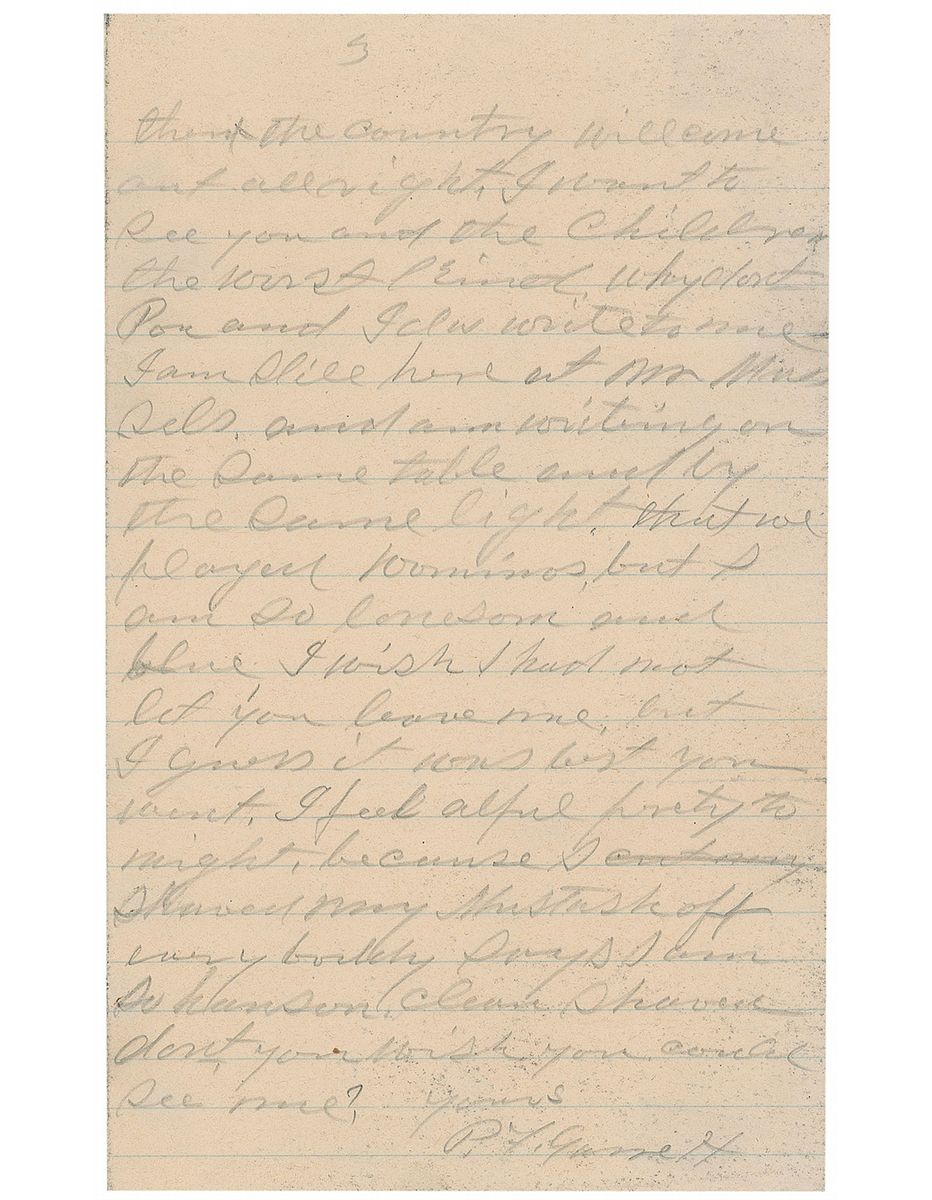 3
think the country will come
out all right, I want to
see you and the Children
the worst kind, why dont
Poe and Ida write to me
I am still here at Mr
sels. and am writing on
the same table and by
the same light, that we
played Dominos, but I
am so lonesom and
blue I wish I had not
let you leave me, but
I guess it was best you
went. I feel alful prety to
night, because I cut my
shaved my Mustash off
every boddy says I am
so hanson, clean shaved
dont you wish you could
see me? yours
P. F. Garrett